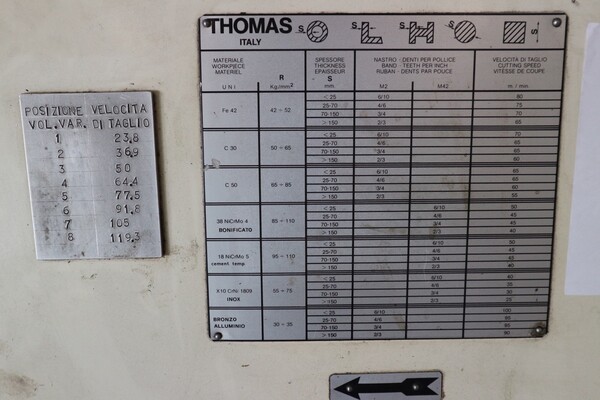 POSIZIONE VELOCITA
VOL.VAR. DI TAGLIO
1 23,8
2 36,9
3 50
4 64,4
5 77,5
6 91,8
7 105
8 119,3
THOMAS
ITALY
S S S S
MATERIALE SPESSORE NASTRO : DENTI PER POLLICE VELOCITA DI TAGLIO
WORKPIECE R THICKNESS BAND : TEETH PER INCH CUTTING SPEED
MATERIEL EPAISSEUR RUBAN : DENTS PAR POUCE VITESSE DE COUPE
S
UNI Kg/mm² mm. M2 M42 m. / min.
Fe 42 42 ÷ 52
< 25 6/10 80
25-70 4/6 75
70-150 3/4 70
> 150 2/3 65
C 30 50 ÷ 65
< 25 6/10 70
25-70 4/6 65
70-150 3/4 65
> 150 2/3 60
C 50 65 ÷ 85
< 25 6/10 65
25-70 4/6 65
70-150 3/4 60
> 150 2/3 55
38 NiCrMo 4 85 ÷ 110
BONIFICATO
< 25 6/10 50
25-70 4/6 45
70-150 3/4 45
> 150 2/3 40
18 NiCrMo 5 95 ÷ 110
cement. temp.
< 25 6/10 50
25-70 4/6
70-150 3/4
> 150 2/3
X10 CrNi 1809 55 ÷ 75
INOX
< 25 6/10 40
25-70 4/6
70-150 3/4 30
> 150 2/3 25
BRONZO 30 ÷ 35
ALLUMINIO
< 25 6/10 100
25-70 4/6
70-150 3/4
> 150 2/3